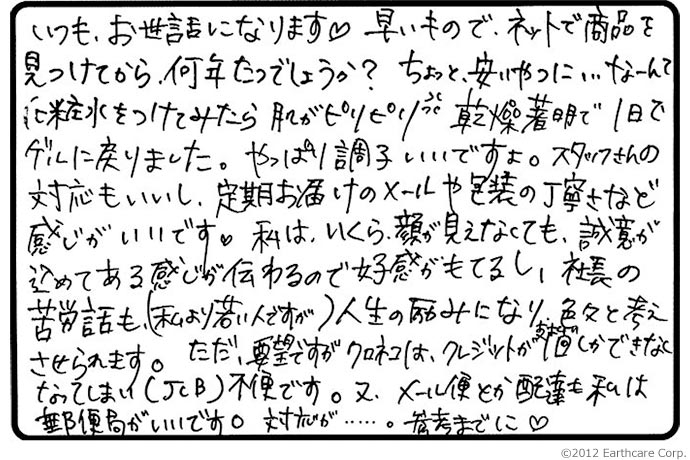 いつも、お世話になります♡ 早いもので、ネットで商品を
見つけてから、何年たつでしょうか？ ちょっと、安いやつに…なーんて
化粧水をつけてみたら肌がピリピリ 乾燥著明で1日で
ゲルに戻りました。やっぱり調子いいですね。スタッフさんの
対応もいいし、定期お届けのメールや包装の丁寧さなど
感じがいいです♡ 私は、いくら、顔が見えなくても、誠意が
込めてある感じが伝わるので好感がもてるし、社長の
苦労話も、(私より若い人ですが)人生の励みになり、色々と考え
させられます。 ただ、要望ですがクロネコは、クレジットが 1回しかできなく
なってしまい(JCB)不便です。又、メール便とか配達も私は
郵便局がいいです。 対応が……。参考までに♡
©2012 Earthcare Corp.